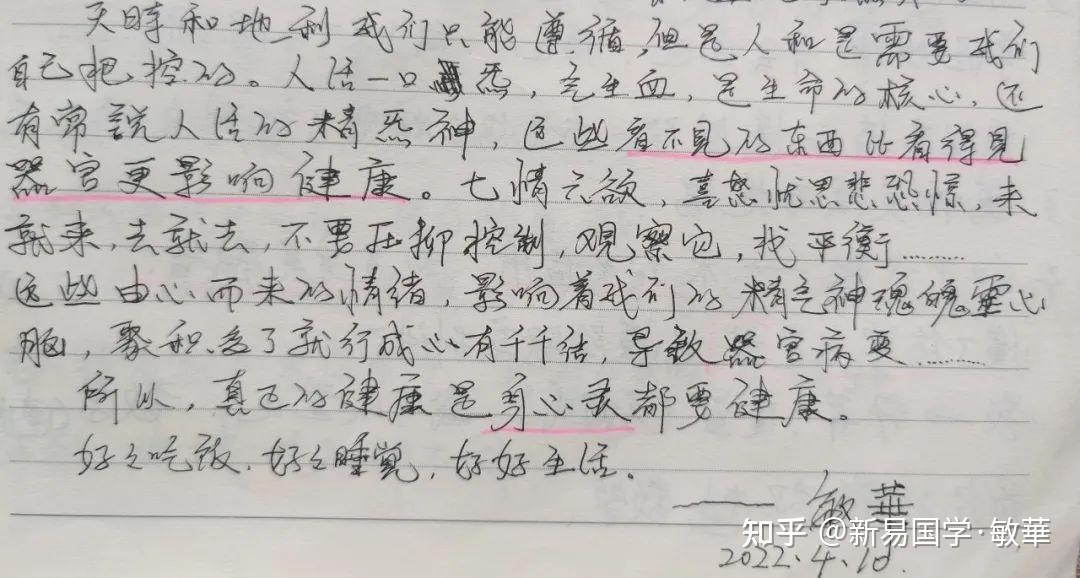 天時和地利我们只能遵循,但是人和是需要我们
自己把控的。人活一口炁,炁生血,是生命的核心,还
有常說人活的精炁神,这些看不見的东西比看得見
器官更影响健康。七情六欲,喜怒忧思悲恐惊,来
就来,去就去,不要压抑控制,观察它,找平衡………
这些由心而来的情绪,影响着我们的精气神魂魄靈心
脑,聚积多了就行成心有千千结,导致器官病变………
所以,真正的健康是身心灵都要健康。
好之吃饭,好之睡觉,好好生活。
——敏華
知乎 @新易国学·敏華
2022.4.10.